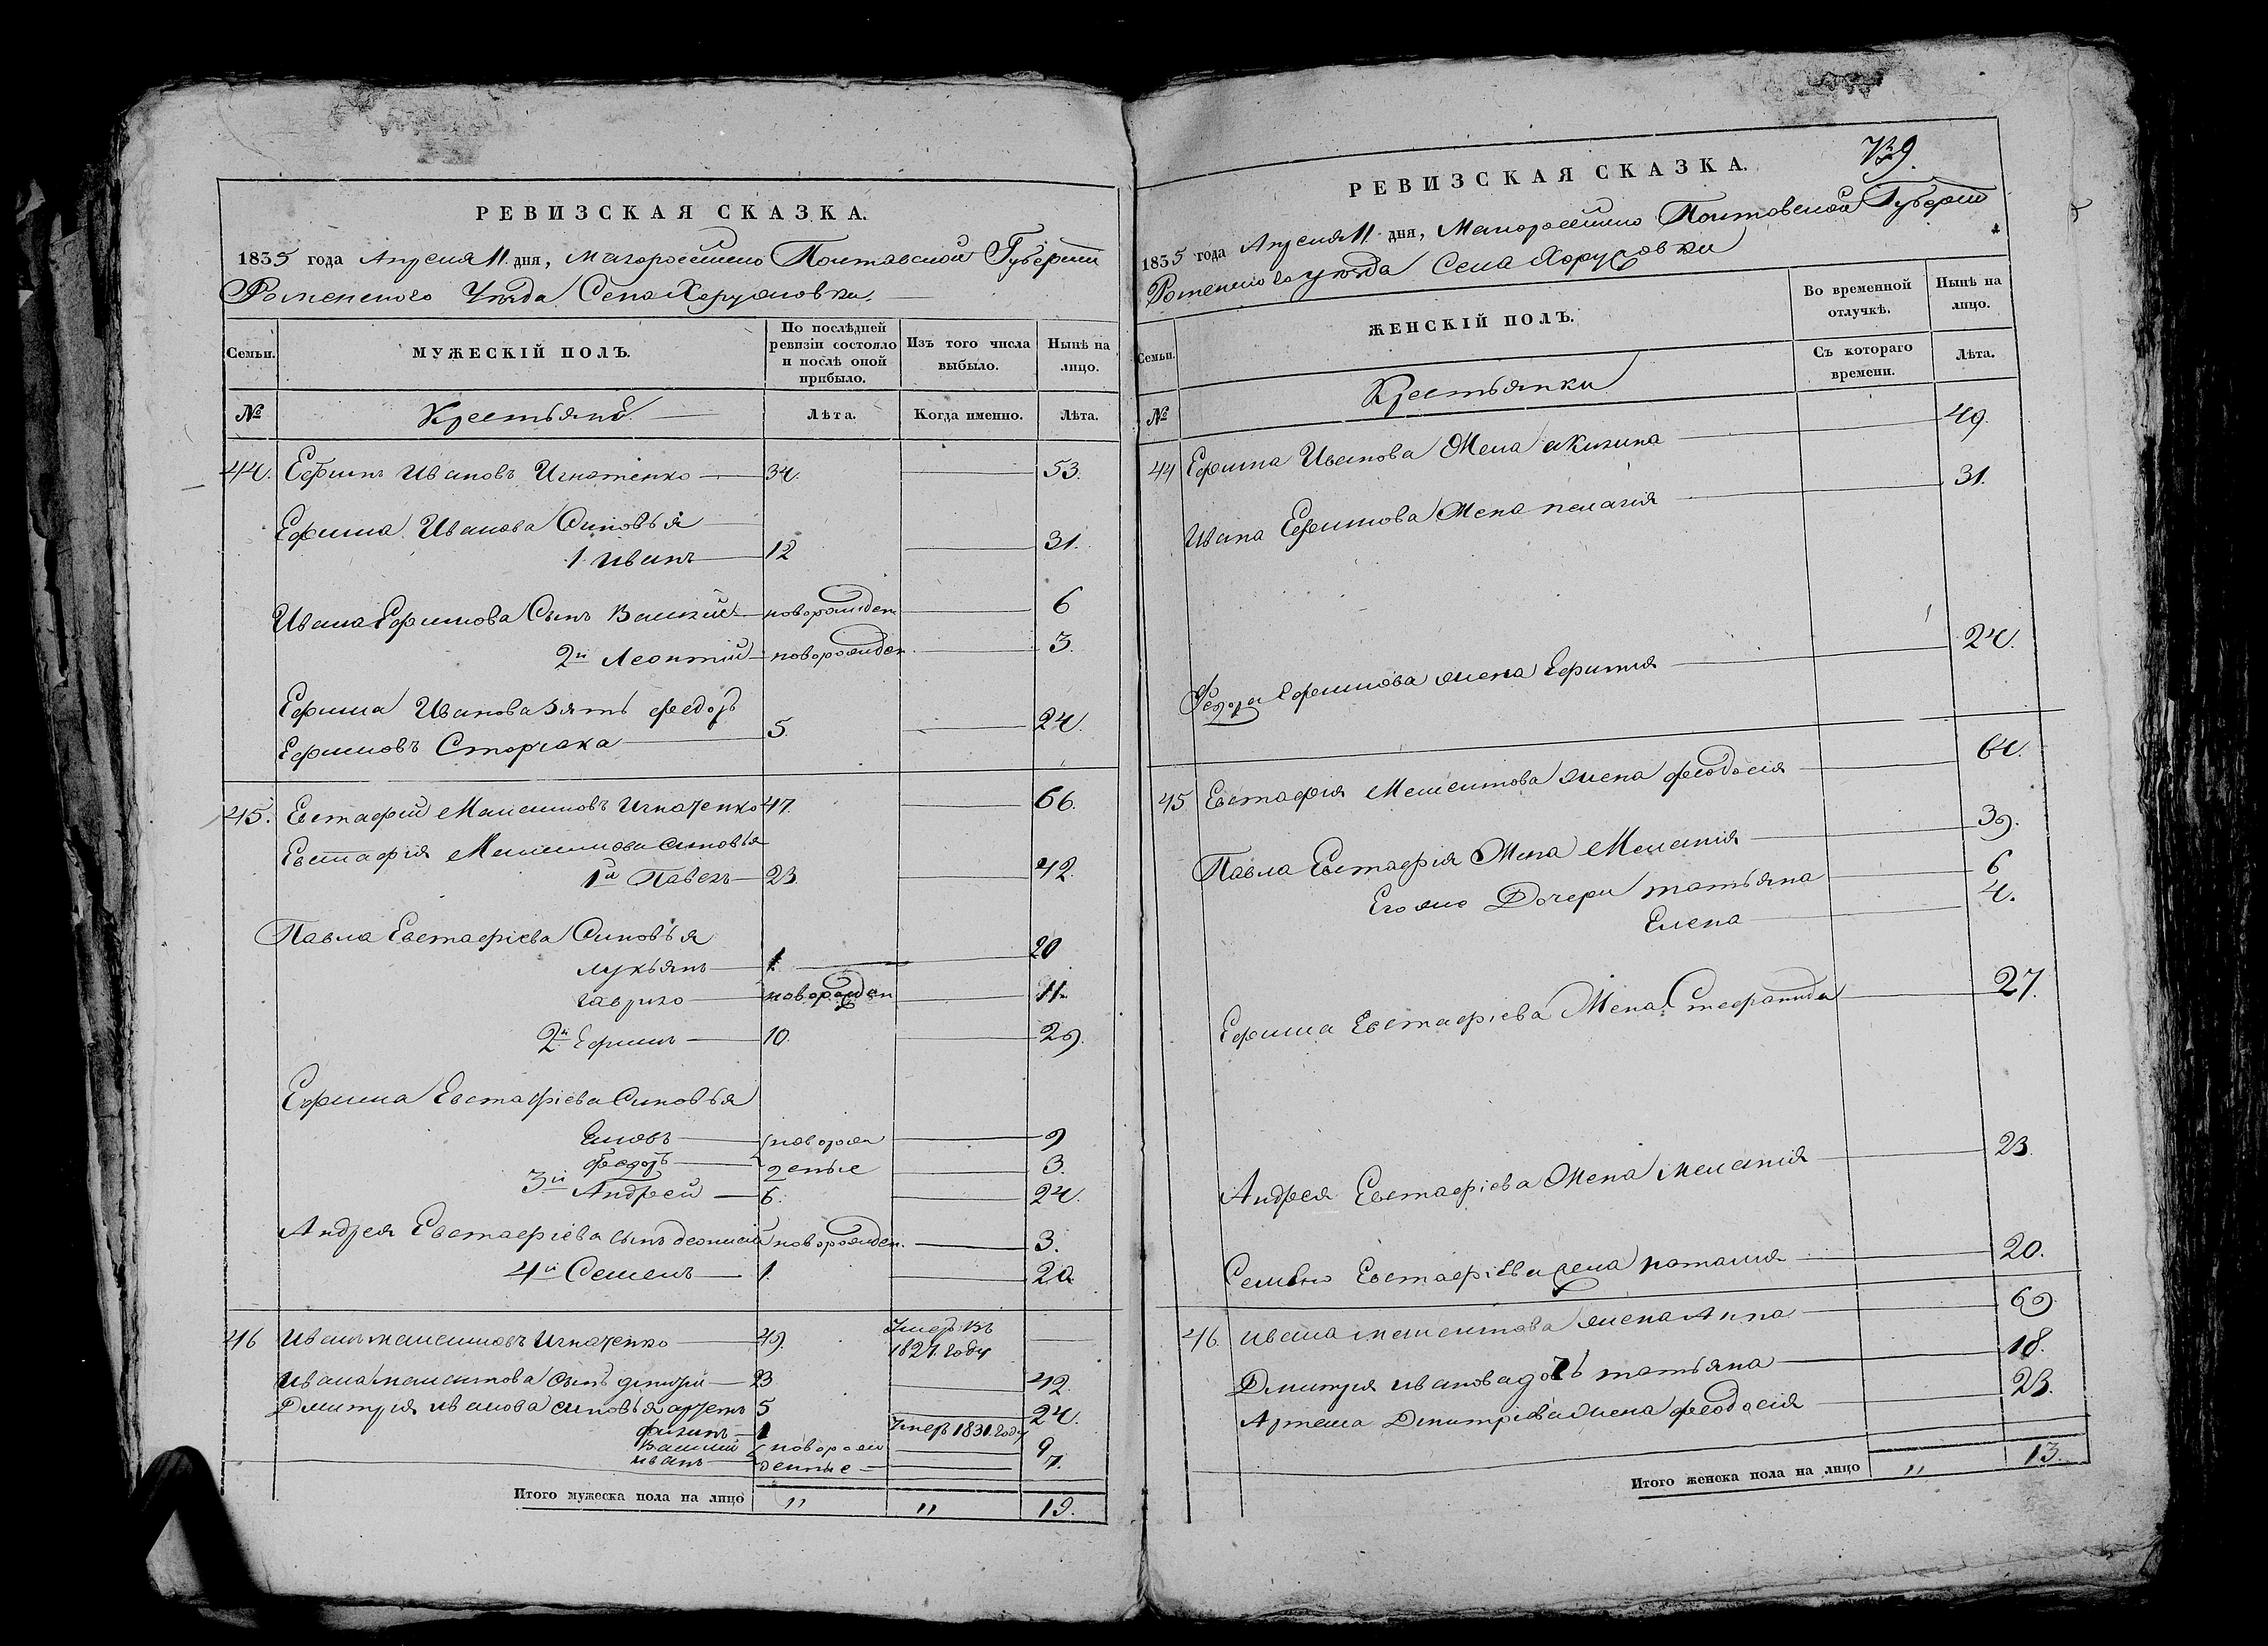 РЕВИЗСКАЯ СКАЗКА.
1835 года Апреля 11 дня, Малороссійско Полтавской Губерніи
Роменского Уезда Села Хоружовки.
Семьи.
МУЖЕСКІЙ ПОЛЪ.
По послѣдней ревизіи состояло и послѣ оной прибыло.
Изъ того числа выбыло.
Нынѣ на лицо.
№
Крестьянъ
Лѣта.
Когда именно.
Лѣта.
44. Ефимъ Ивановъ Игнатенко 34. 53.
Ефима Иванова Сыновья
1 Иванъ 12 31.
Ивана Ефимова Сынъ Василій новорожден 6
2й Леонтій новорожден. 3.
Ефима Иванова зять Федоръ
Ефимовъ Сторчака 5. 24.
45. Евстафій Максимовъ Игнатенко 47. 66.
Евстафія Максимова сыновья
1й Павелъ 23. 42.
Павла Евстафіева Сыновья
Лукьянъ 1. 20
Гаврило новорожден 11.
2й Ефимъ 10. 29.
Ефима Евстафіева Сыновья
Яковъ новорож 9
Федоръ денные 3.
3й Андрей 5. 24.
Андрея Евстафіева сынъ новорожден. 3.
4й Семенъ 1. 20.
46 Иванъ Максимовъ Игнатенко 49. Умеръ въ
1827. году
Ивана Максимова сынъ Дмитрій 23 42.
Дмитрія Иванова сыновья Артемъ 5 24.
1 Умеръ 1831. году
Василій новорож 9
Иванъ денные 7.
Итого мужеска пола на лицо " " 19.
739.
РЕВИЗСКАЯ СКАЗКА.
1835 года Апреля 11. дня, Малороссійско Полтавской Губерніи
Роменского уезда Села Хоружовки
Семьи.
ЖЕНСКІЙ ПОЛЪ.
Во временной отлучкѣ.
Нынѣ на лицо.
Съ котораго времени.
Лѣта.
№
Крестьянки
44 Ефима Иванова Жена Акилина 49.
Ивана Ефимова Жена Пелагія 31.
Федора Ефимова жена Ефимія 24.
45 Евстафія Максимова жена Феодосія 64.
Павла Евстафія Жена Меланія 39.
Его же Дочери Татьяна 6
Елена 4.
Ефима Евстафіева Жена Стефанида 27.
Андрея Евстафіева Жена Меланія 23.
Семена Евстафіева жена Наталія 20.
46. Ивана Максимова жена Анна 69.
Дмитрія Иванова дочь Татьяна 18.
Артема Дмитріева жена Феодосія 23.
Итого женска пола на лицо " 13.